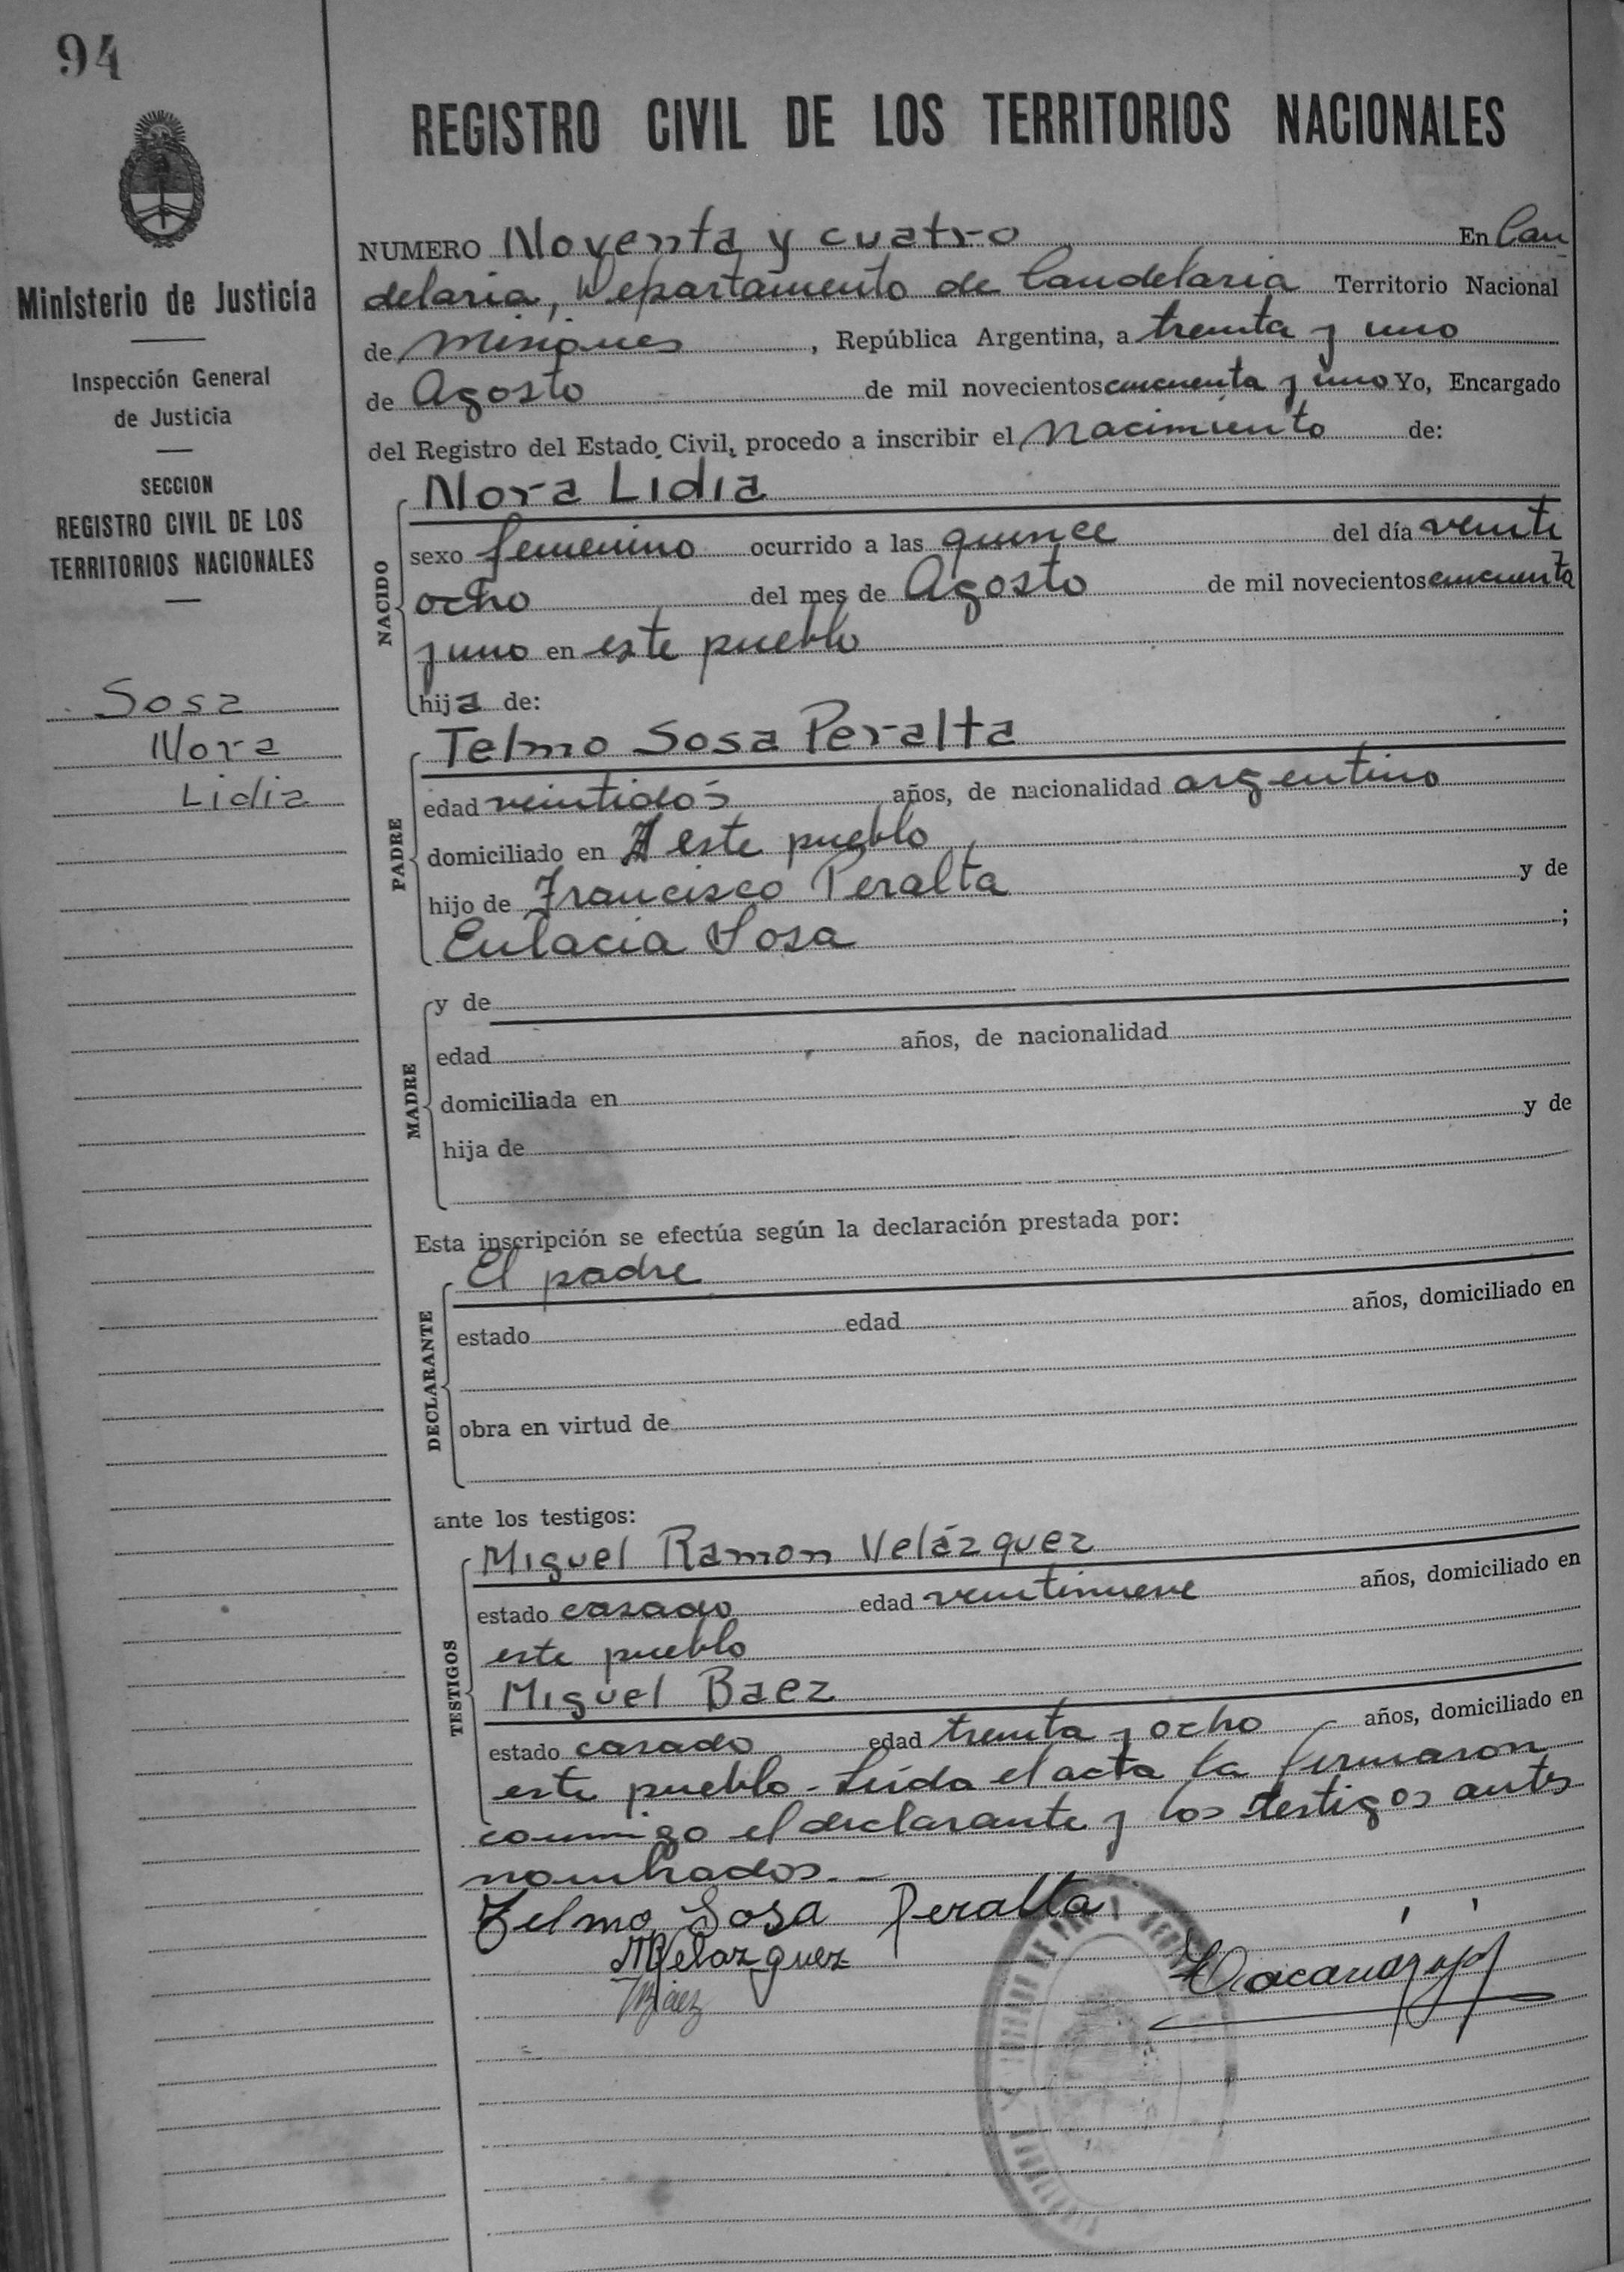 94
Ministerio de Justicia
Inspección General
de Justicia
SECCION
REGISTRO CIVIL DE LOS
TERRITORIOS NACIONALES
Sosa
Nora
Lidia
REGISTRO CIVIL DE LOS TERRITORIOS NACIONALES
NUMERO Noventa y cuatro En Can
delaria, Departamento de Candelaria Territorio Nacional
de Misiones, República Argentina, a treinta y uno
de Agosto de mil novecientos cincuenta y uno Yo, Encargado
del Registro del Estado Civil, procedo a inscribir el Nacimiento de:
NACIDO
Nora Lidia
sexo femenino ocurrido a las quince del día veinti
ocho del mes de Agosto de mil novecientos cincuenta
y uno en este pueblo
hija de:
PADRE
Telmo Sosa Peralta
edad veintidós años, de nacionalidad argentino
domiciliado en este pueblo
hijo de Francisco Peralta y de
Eulacia Sosa ;
MADRE
y de
edad años, de nacionalidad
domiciliada en
hija de y de
Esta inscripción se efectúa según la declaración prestada por:
DECLARANTE
El padre
estado edad años, domiciliado en
obra en virtud de
ante los testigos:
TESTIGOS
Miguel Ramon Velázquez
estado casado edad veintinueve años, domiciliado en
este pueblo
Miguel Baez
estado casado edad treinta y ocho años, domiciliado en
este pueblo - Leída el acta la firmaron
conmigo el declarante y los testigos antes
nombrados. -
Telmo Sosa Peralta
MRVelazquez
MBáez